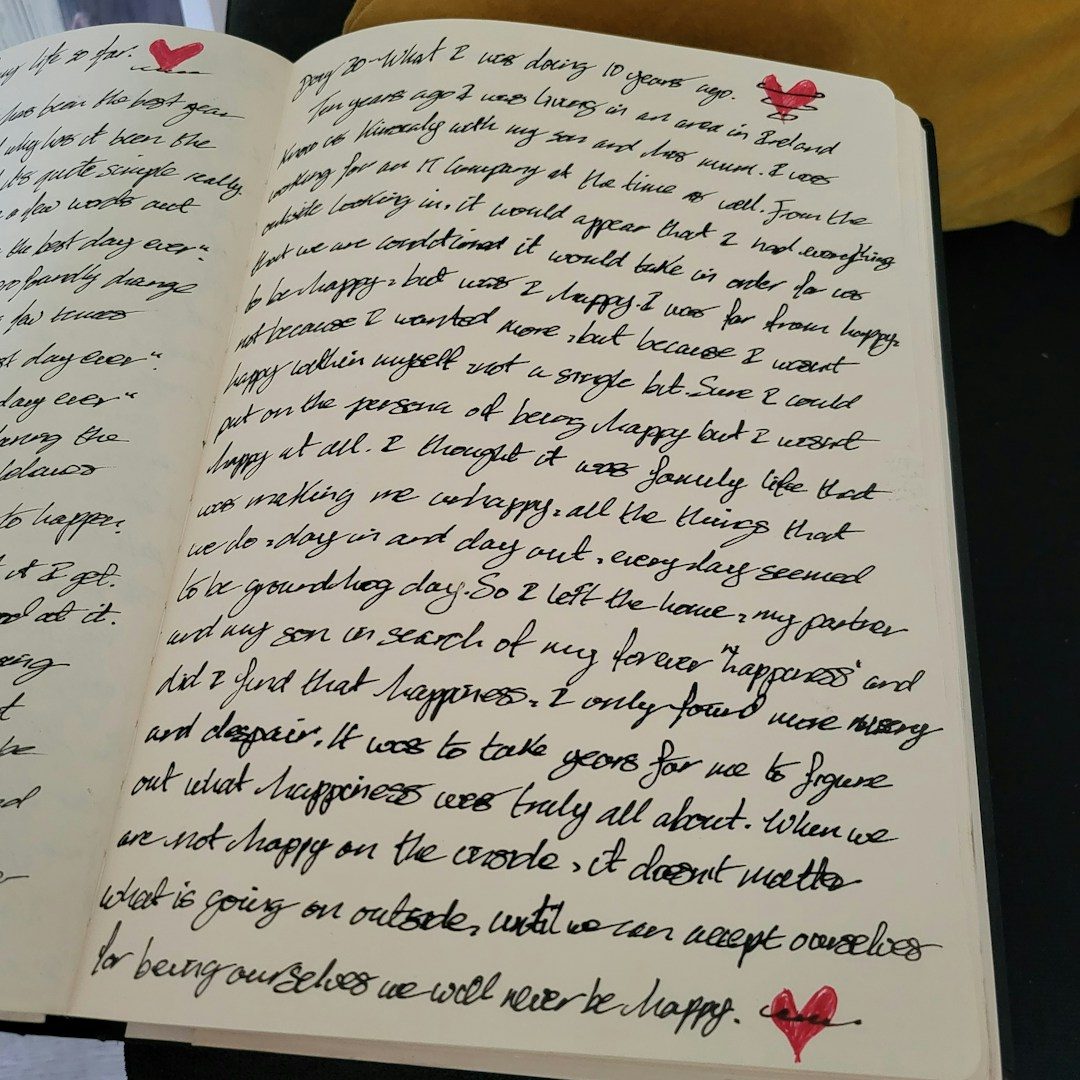 my life so far.
has been the best year
why has it been the
it's quite simple really
a few words out
the best day ever"
profoundly change
few times
day ever".
day ever"
during the
to happen.
it I get.
at it.
Day 20-What I was doing 10 years ago.
Ten years ago I was living in an area in Ireland
know as Kinsealy with my son and his mum. I was
working for an IT company at the time as well. From the
outside looking in, it would appear that I had everything
that we are conditioned it would take in order for us
to be happy, but was I happy. I was far from happy,
not because I wanted more, but because I wasnt
happy within myself, not a single bit. Sure I could
put on the persona of being happy but I wasnt
happy at all. I thought it was family life that
was making me unhappy, all the things that
we do, day in and day out, every day seemed
to be groundhog day. So I left the home, my partner
and my son in search of my forever "happiness" and
did I find that happiness, I only found more misery
and despair. It was to take years for me to figure
out what happiness was truly all about. When we
are not happy on the inside, it doesnt matter
what is going on outside, until we can accept ourselves
for being ourselves we will never be happy.